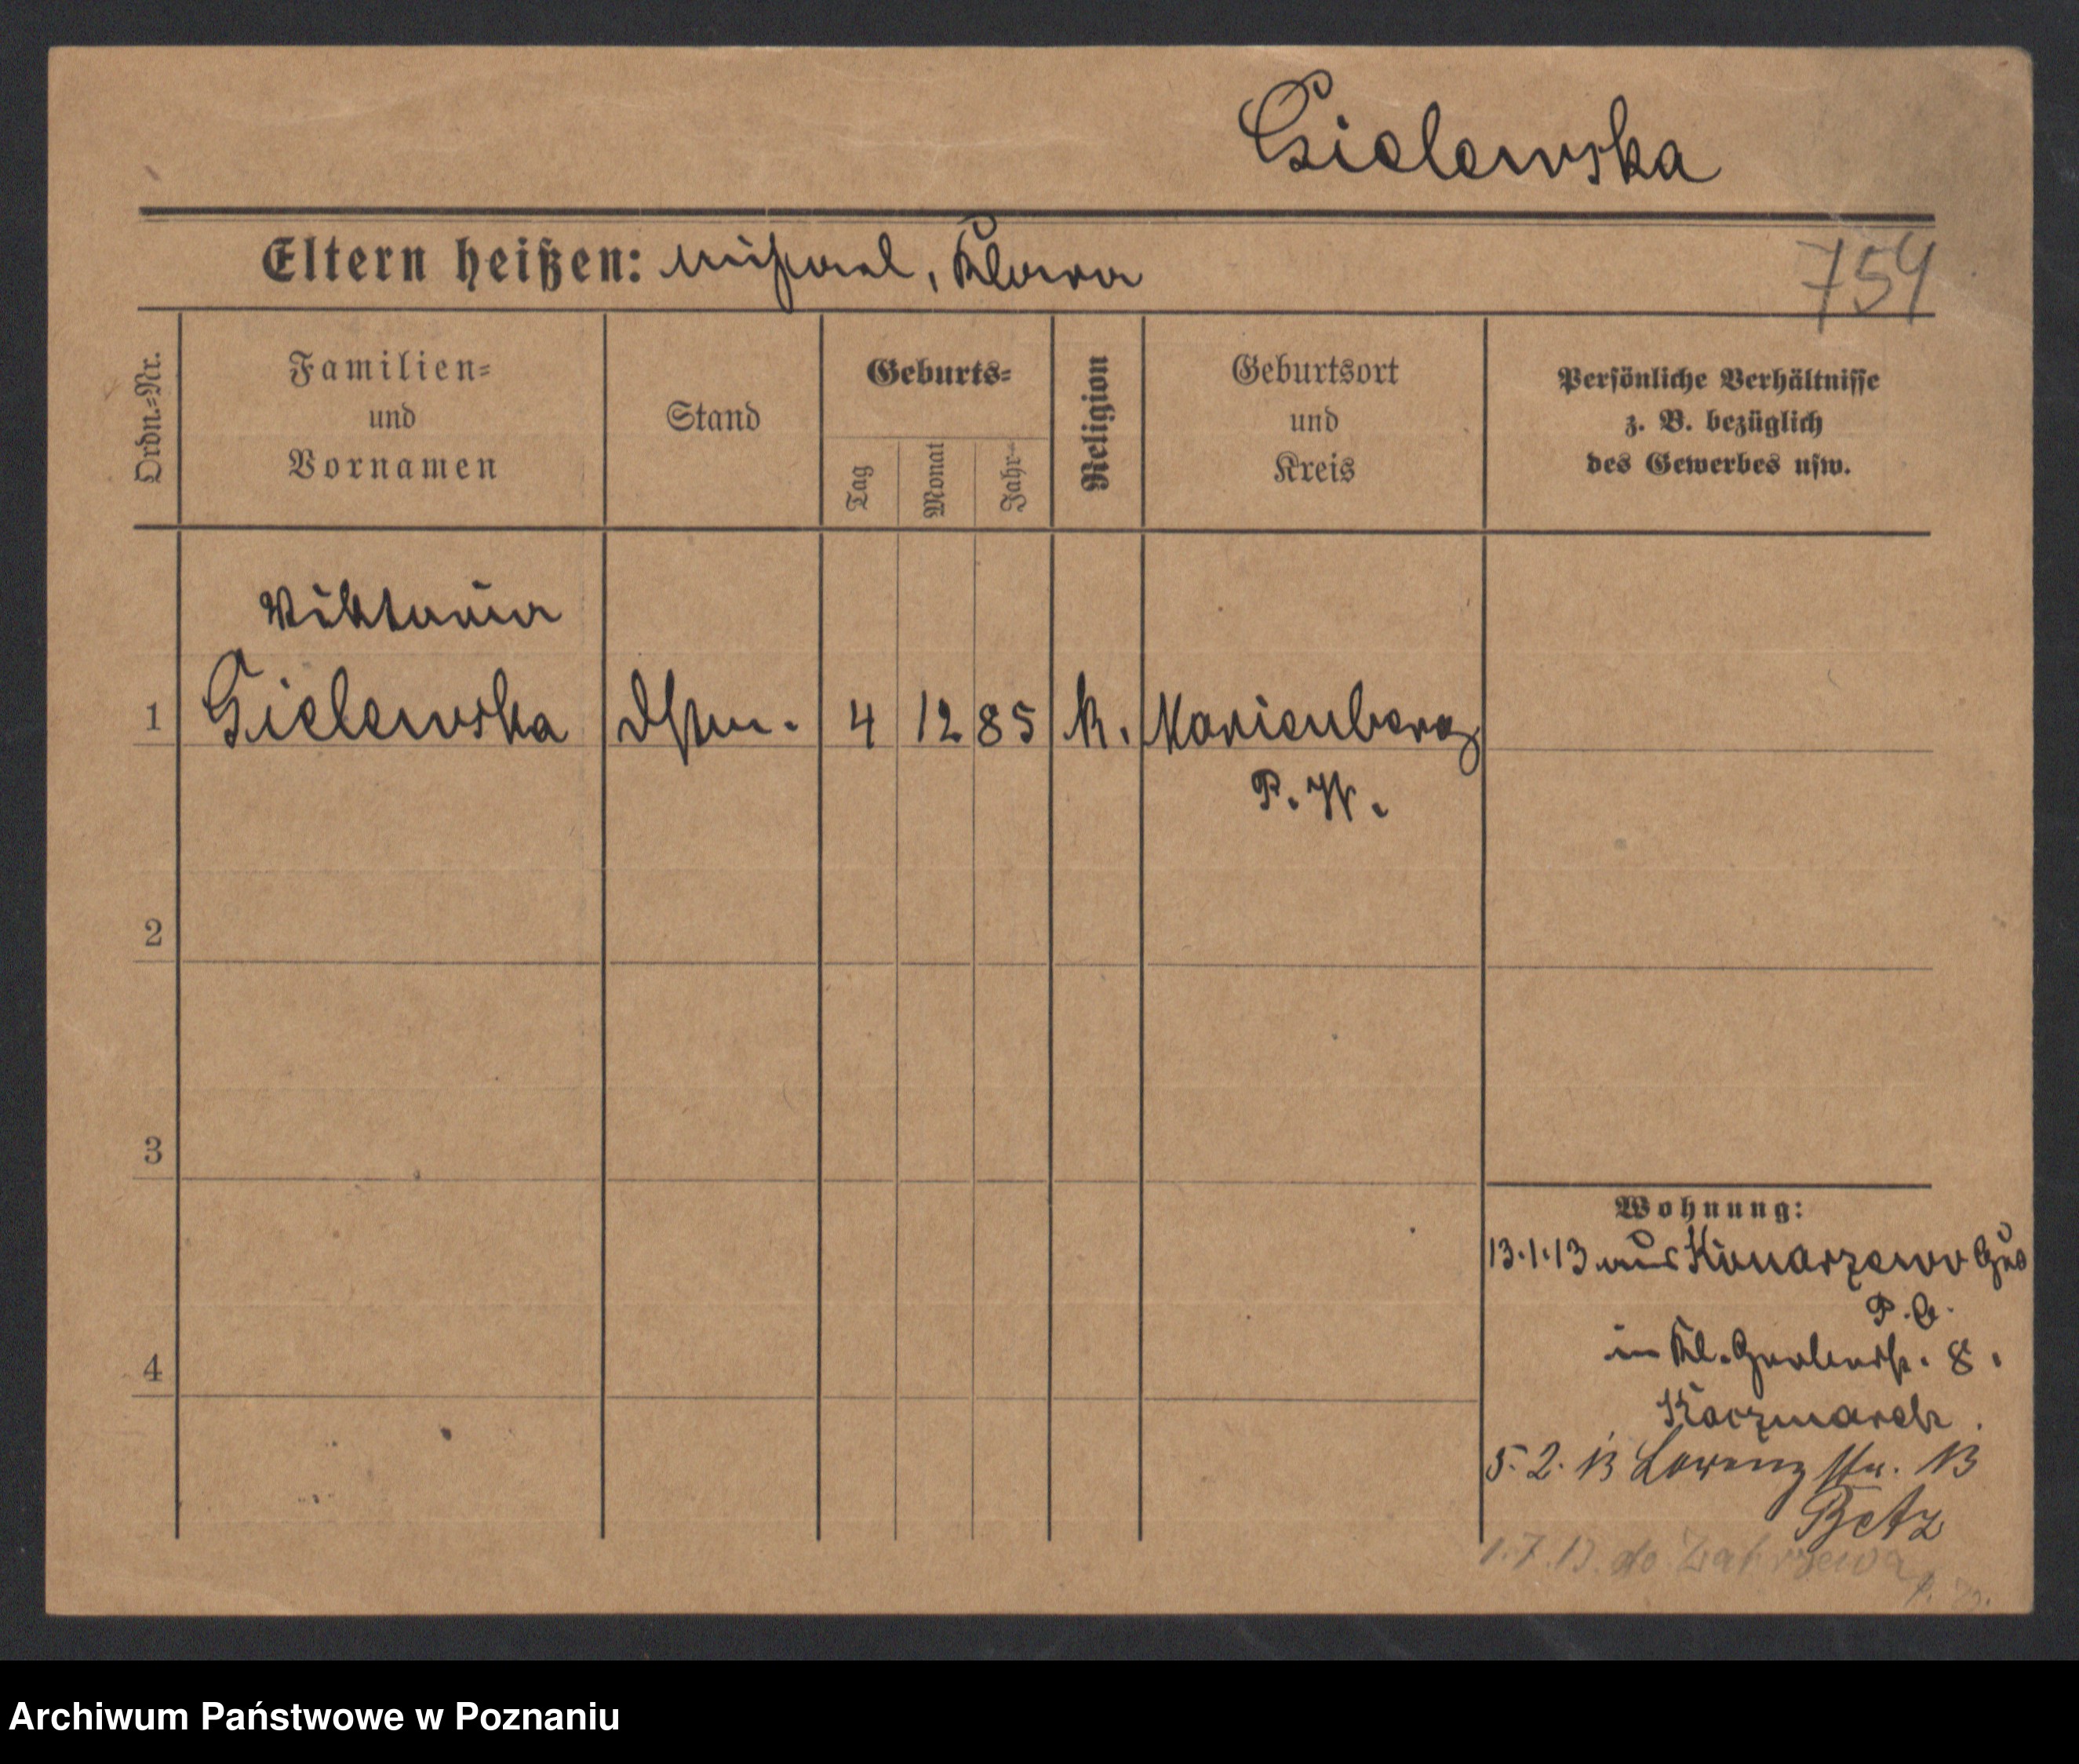 Gielewska
Eltern heißen: Michael, Klara
754
Ordn.-Nr.
Familien-
und
Vornamen
Stand
Geburts-
Tag
Monat
Jahr-
Religion
Geburtsort
und
Kreis
Persönliche Verhältnisse
z. B. bezüglich
des Gewerbes usw.
Viktoria
1 Gielewska 4 12 85 K. Marienberg
P. W.
2
3
4
Wohnung:
13.1.13 aus Konarzewo
P. O.
in Kl. Gerberstr. 8.
Kaczmarek.
5. 2. 13 Lorenzstr. 13
Betz
1.7.13. do Zakrzewa
Archiwum Państwowe w Poznaniu